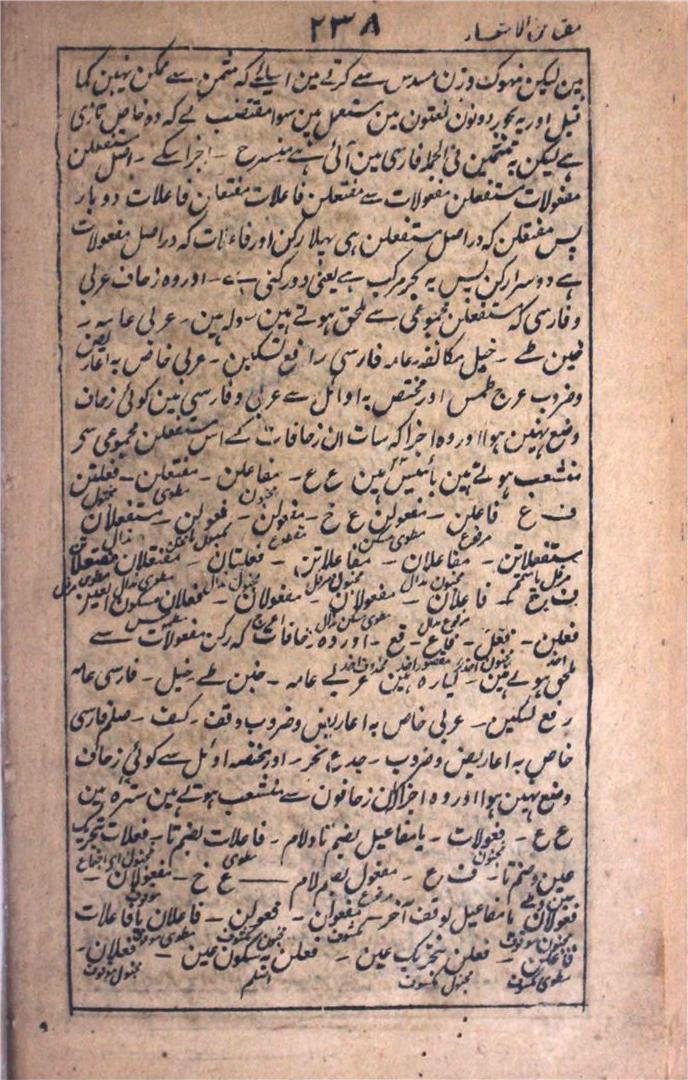 مقیاس الاشعار
۲۳۸
ہین لیکن منہوک وزن مسدس سے کرتے ہین اسلئے کہ مثمن سے ممکن نہین کما
قیل اور یہ بحور دونون لغتون مین مستعمل ہین سوا مقتضب کے کہ وہ خاص تازی
ہے لیکن بہ تثمین فی الجملہ فارسی مین آئی ہے منسرح - اجزا سکے - اصل مستفعلن
مفعولات مستفعلن مفعولات سے مفتعلن فاعلات مفتعلن فاعلات دوبار
پس مفتعلن کہ در اصل مستفعلن ہی پہلا رکن اور فاعلات کہ در اصل مفعولات
ہے دوسرا رکن پس یہ بحر مرکب ہے یعنی دو رکنی ہے - اور وہ زحاف عربی
و فارسی کہ مستفعلن مجموعی سے ملحق ہوتے ہین سولہ ہین - عربی عامہ
خبن طے - خبل مکانفہ عامہ فارسی رافع تسکین - عربی خاص بہ اعاریض
وضروب عرج طمس اور مختص بہ اوائل سے عربی و فارسی مین کوئی زحاف
وضع نہین ہوا اور وہ اجزا کہ سات ان زحافات کے اس مستفعلن مجموعی سے
منشعب ہوتے ہین بائیس ہین ع ع - مفاعلن - مفتعلن - فعلتن
مخبون مطوی مخبول
ف ع فاعلن - مفعولن ع خ - مفعولن - فعولن - مستفعلان
مرفوع مطوی مسکن مقطوع مذال
مستفعلاتن - مفاعلان - مفاعلاتن - فعلتان - مفتعلان مفتعلاتن
مرفل مخبون مذال مخبون مرفل مخبول مذال مطوی مذال مطوی مرفل
ف خ - فاعلان - مفعولان - مفعولان - فعلان بسکون العین
مرفوع مذال مطوی مسکن مذال
فعلن - فعل - فاع - فع - اور وہ زحافات کہ رکن مفعولات سے
احذ
ملحق ہوتے ہین - گیارہ ہین عربی عامہ - خبن طے خبل - فارسی عامہ
رفع تسکین - عربی خاص بہ اعاریض وضروب وقف - کسف - صلم فارسی
خاص بہ اعاریض وضروب - جدع نحر - اور مختصہ اوائل سے کوئی زحاف
وضع نہین ہوا اور وہ اجزا کہ ان زحافون سے منشعب ہوتے ہین سترہ ہین
ع ع - فعولات - یا مفاعیل بضم تا و لام - فاعلات بضم تا - فعلات بتحریک
مخبون مطوی
عین وضم تا - ف ع - مفعول بضم لام - ع خ - مفعولان -
مرفوع موقوف
فعولان یا مفاعیل بوقف آخر - مفعولن - فعولن - فاعلان یا فاعلات
مخبون موقوف مکسوف مخبون مکسوف مطوی موقوف
فاعلن - فعلن بتحریک عین - فعلن بسکون عین - فعلان -
مطوی مکسوف مخبول مکسوف اصلم مخبول موقوف